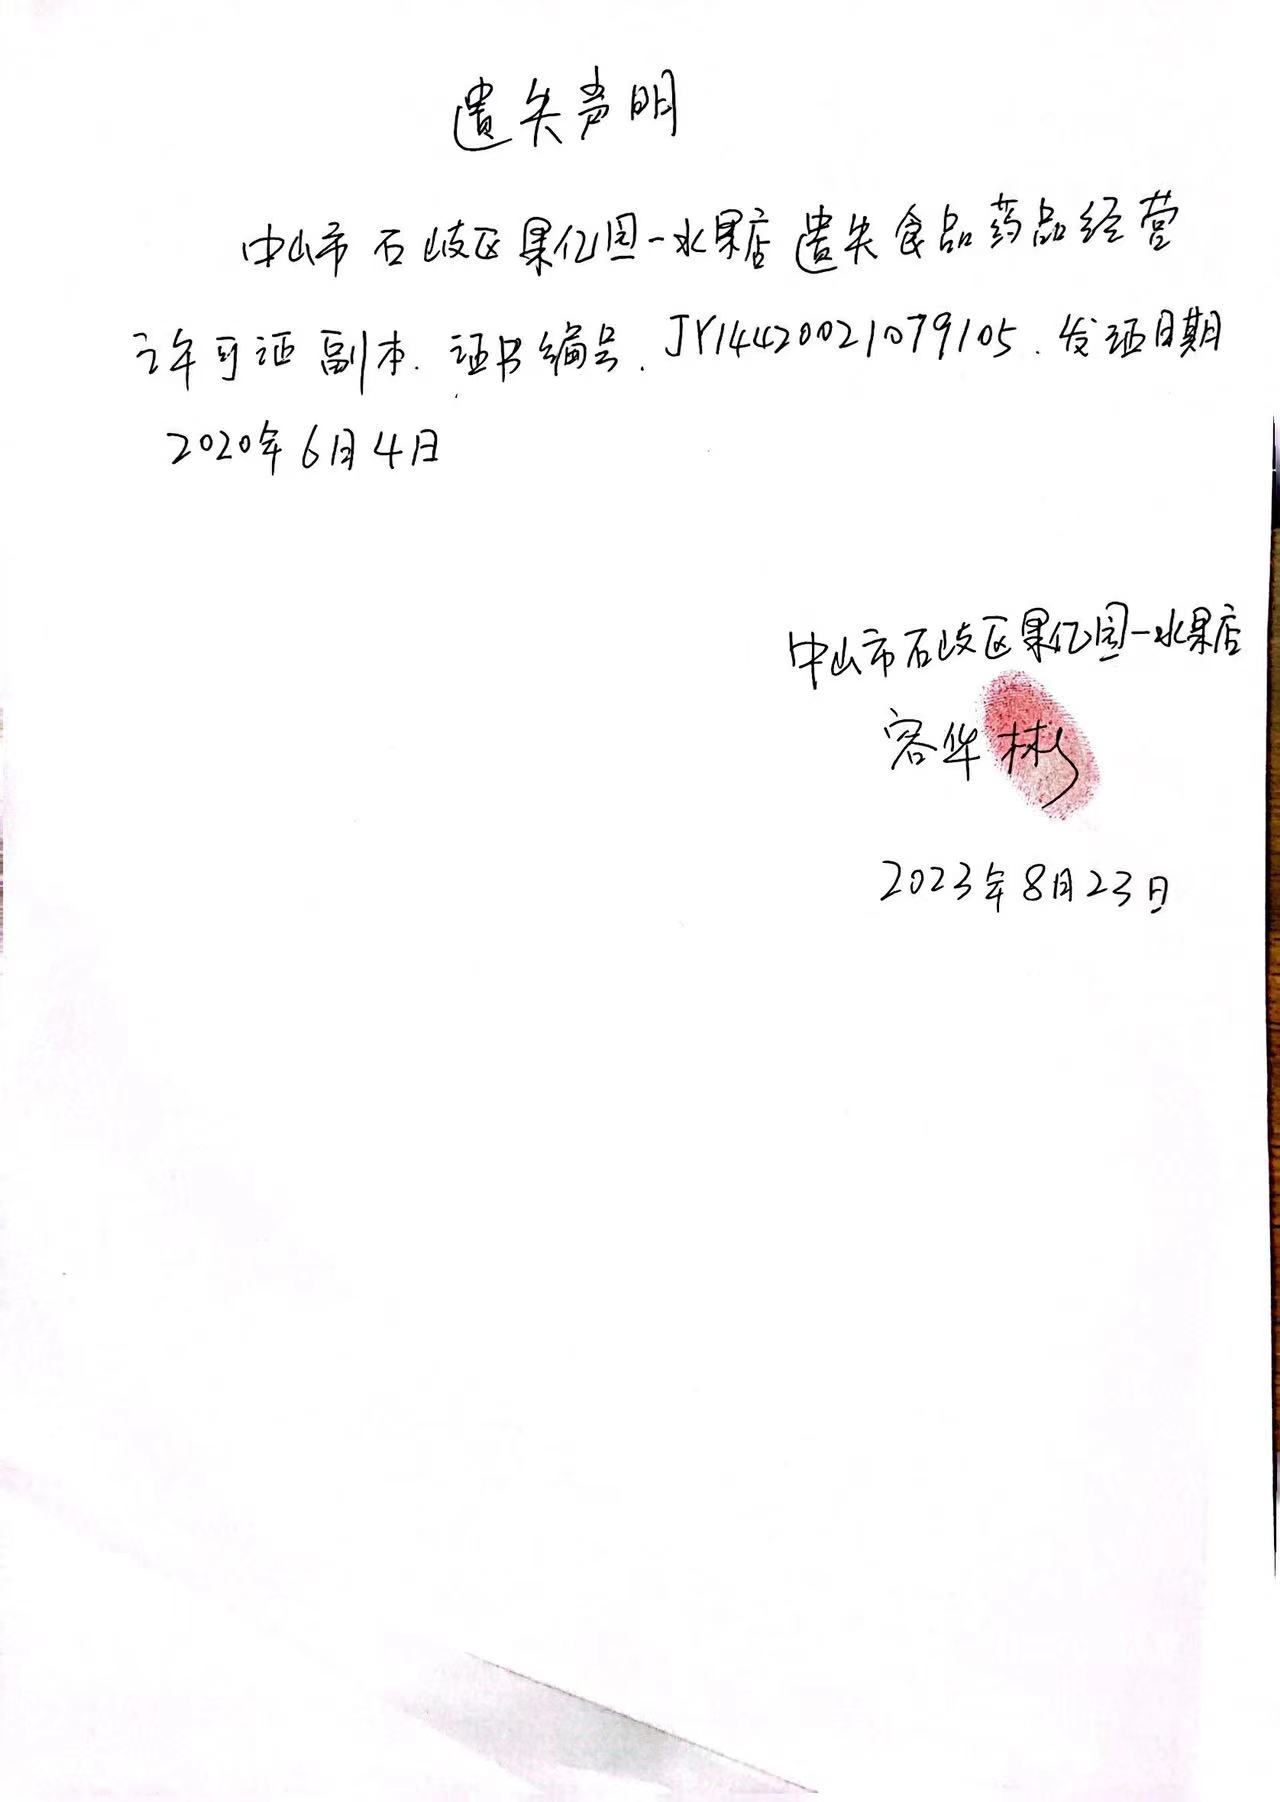 遗失声明
中山市石岐区果亿园一水果店遗失食品药品经营
许可证副本.证书编号.JY14420021079105.发证日期
2020年6月4日
中山市石岐区果亿园一水果店
容华彬
2023年8月23日